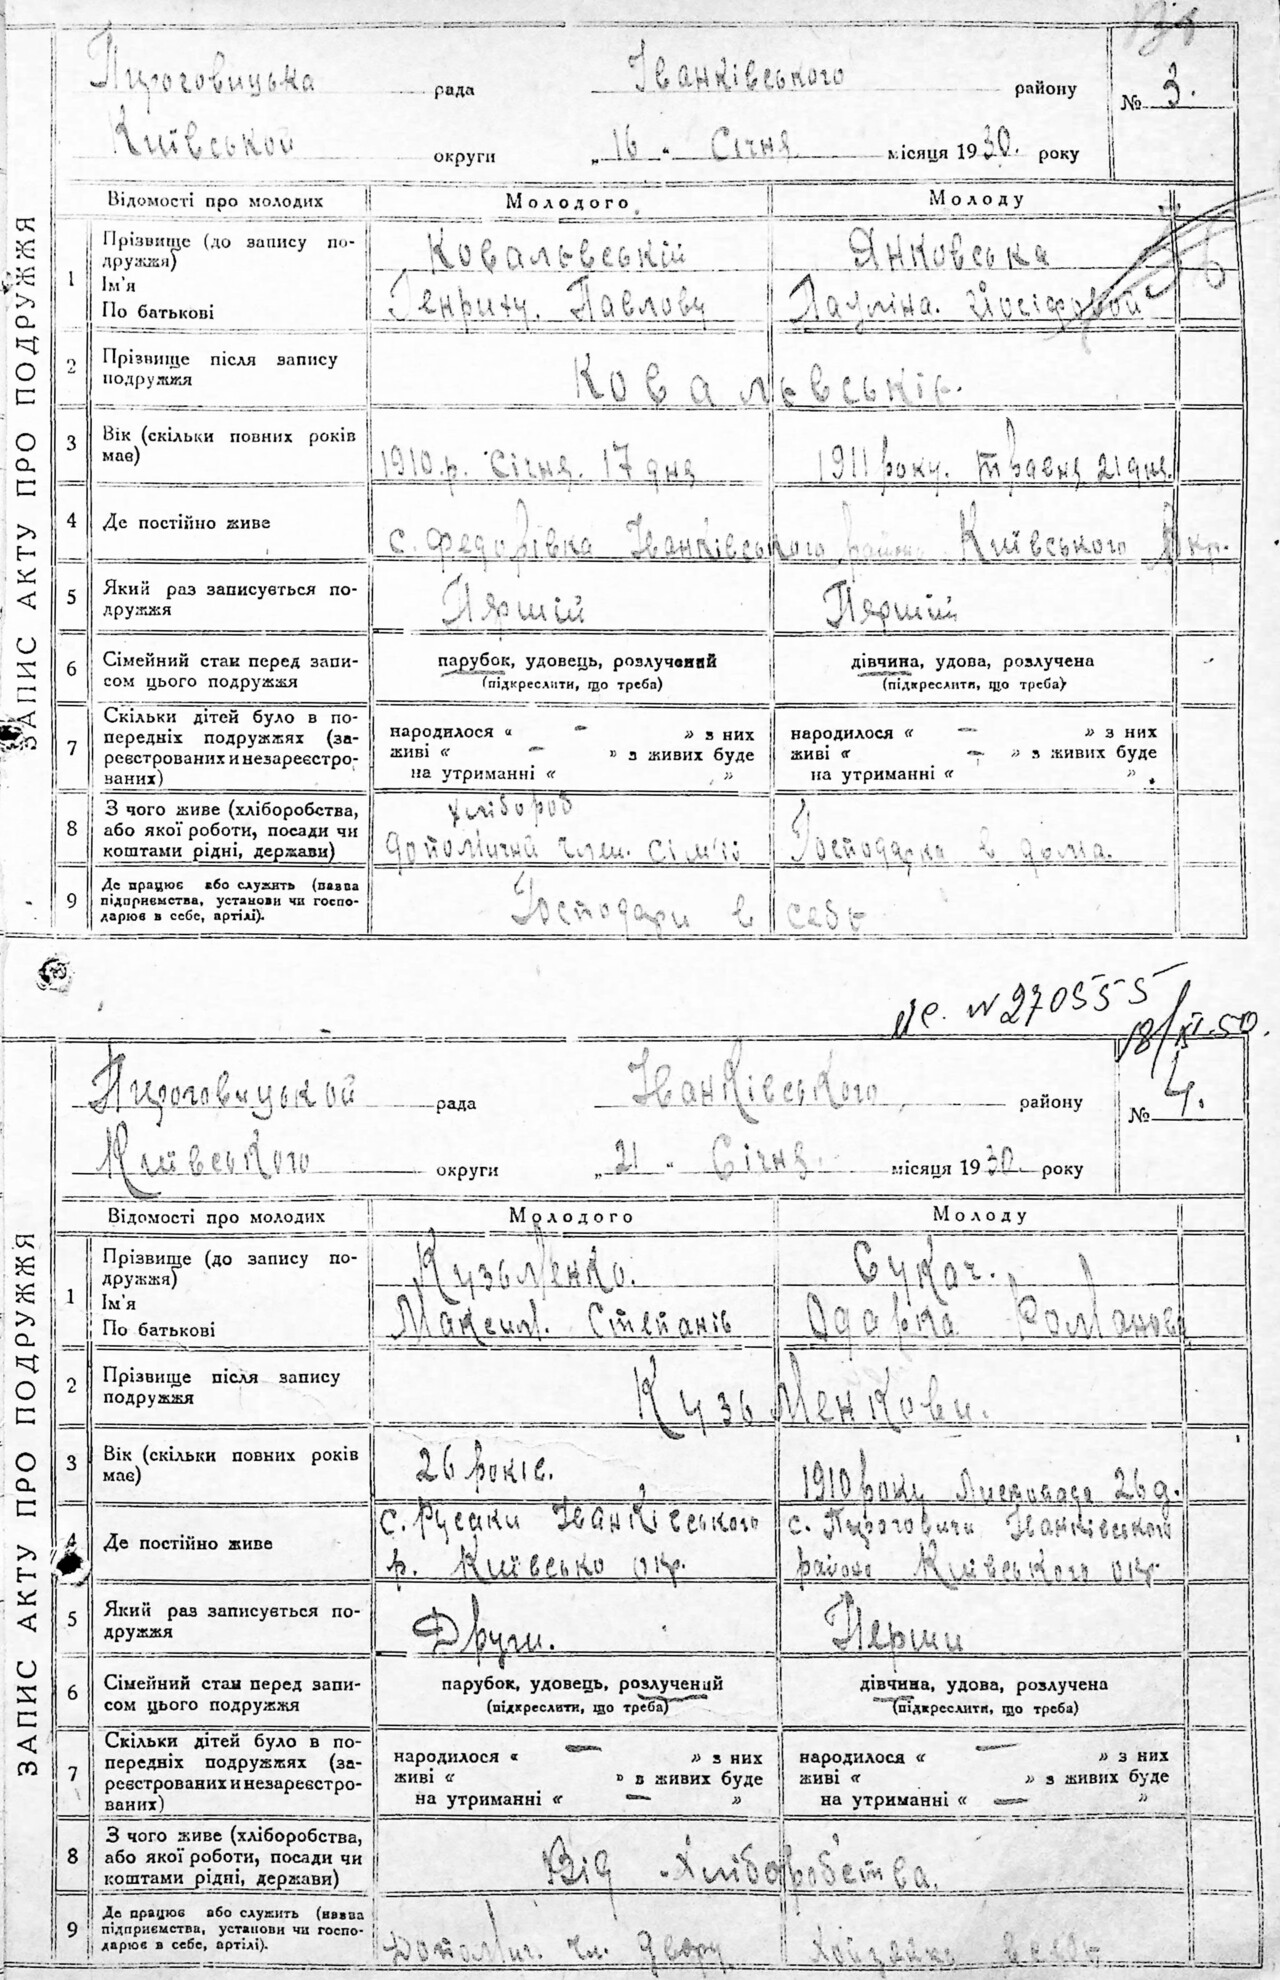 Пироговицька рада Іванківського району № 3.
Київськой округи „16" Січня місяця 1930. року
ЗАПИС АКТУ ПРО ПОДРУЖЖЯ
Відомості про молодих Молодого Молоду
1 Прізвище (до запису по-
дружжя) Ковальвській Янковська
Ім'я
По батькові Генриху. Павлову Пауліна. Йосіфовой
2 Прізвище після запису
подружжя Ковальвські
3 Вік (скільки повних років
має) 1910.р. Січня. 17 дня 1911 року. травня 21 дня.
4 Де постійно живе с. Федорівка Іванківського району Київського Окр.
5 Який раз записується по-
дружжя Пярший Пярший
6 Сімейний стан перед запи-
сом цього подружжя парубок, удовець, розлучений дівчина, удова, розлучена
(підкреслити, що треба) (підкреслити, що треба)
7 Скільки дітей було в по-
передніх подружжях (за-
реєстрованих и незареєстро-
ваних) народилося « – » з них народилося « – » з них
живі « – » з живих буде живі « – » з живих буде
на утриманні « » на утриманні « » .
8 З чого живе (хліборобства,
або якої роботи, посади чи
коштами рідні, держави) хлібороб
допомічний член. сім'ї Господарка в дома.
9 Де працює або служить (назва
підприємства, установи чи госпо-
дарює в себе, артілі). Господари в себе
№ 270555
18/XI-50.
Пироговицькой рада Іванківського району № 4.
Київського округи „21" Січня. місяця 1930. року
ЗАПИС АКТУ ПРО ПОДРУЖЖЯ
Відомості про молодих Молодого Молоду
1 Прізвище (до запису по-
дружжя) Кузьменко. Сукач.
Ім'я
По батькові Максим. Степанів Одарка Романова
2 Прізвище після запису
подружжя Кузьменкови.
3 Вік (скільки повних років
має) 26 років. 1910 року Листопада 26 д.
4 Де постійно живе с. Русаки Іванківського с. Пироговичи Іванківського
р. Київсько окр. району Київського окр.
5 Який раз записується по-
дружжя Други. Перши
6 Сімейний стан перед запи-
сом цього подружжя парубок, удовець, розлучений дівчина, удова, розлучена
(підкреслити, що треба) (підкреслити, що треба)
7 Скільки дітей було в по-
передніх подружжях (за-
реєстрованих и незареєстро-
ваних) народилося « – » з них народилося « – » з них
живі « » в живих буде живі « » з живих буде
на утриманні « – » на утриманні « – »
8 З чого живе (хліборобства,
або якої роботи, посади чи
коштами рідні, держави) Від Хліборобства.
9 Де працює або служить (назва
підприємства, установи чи госпо-
дарює в себе, артілі). Допоміч. чл. двору